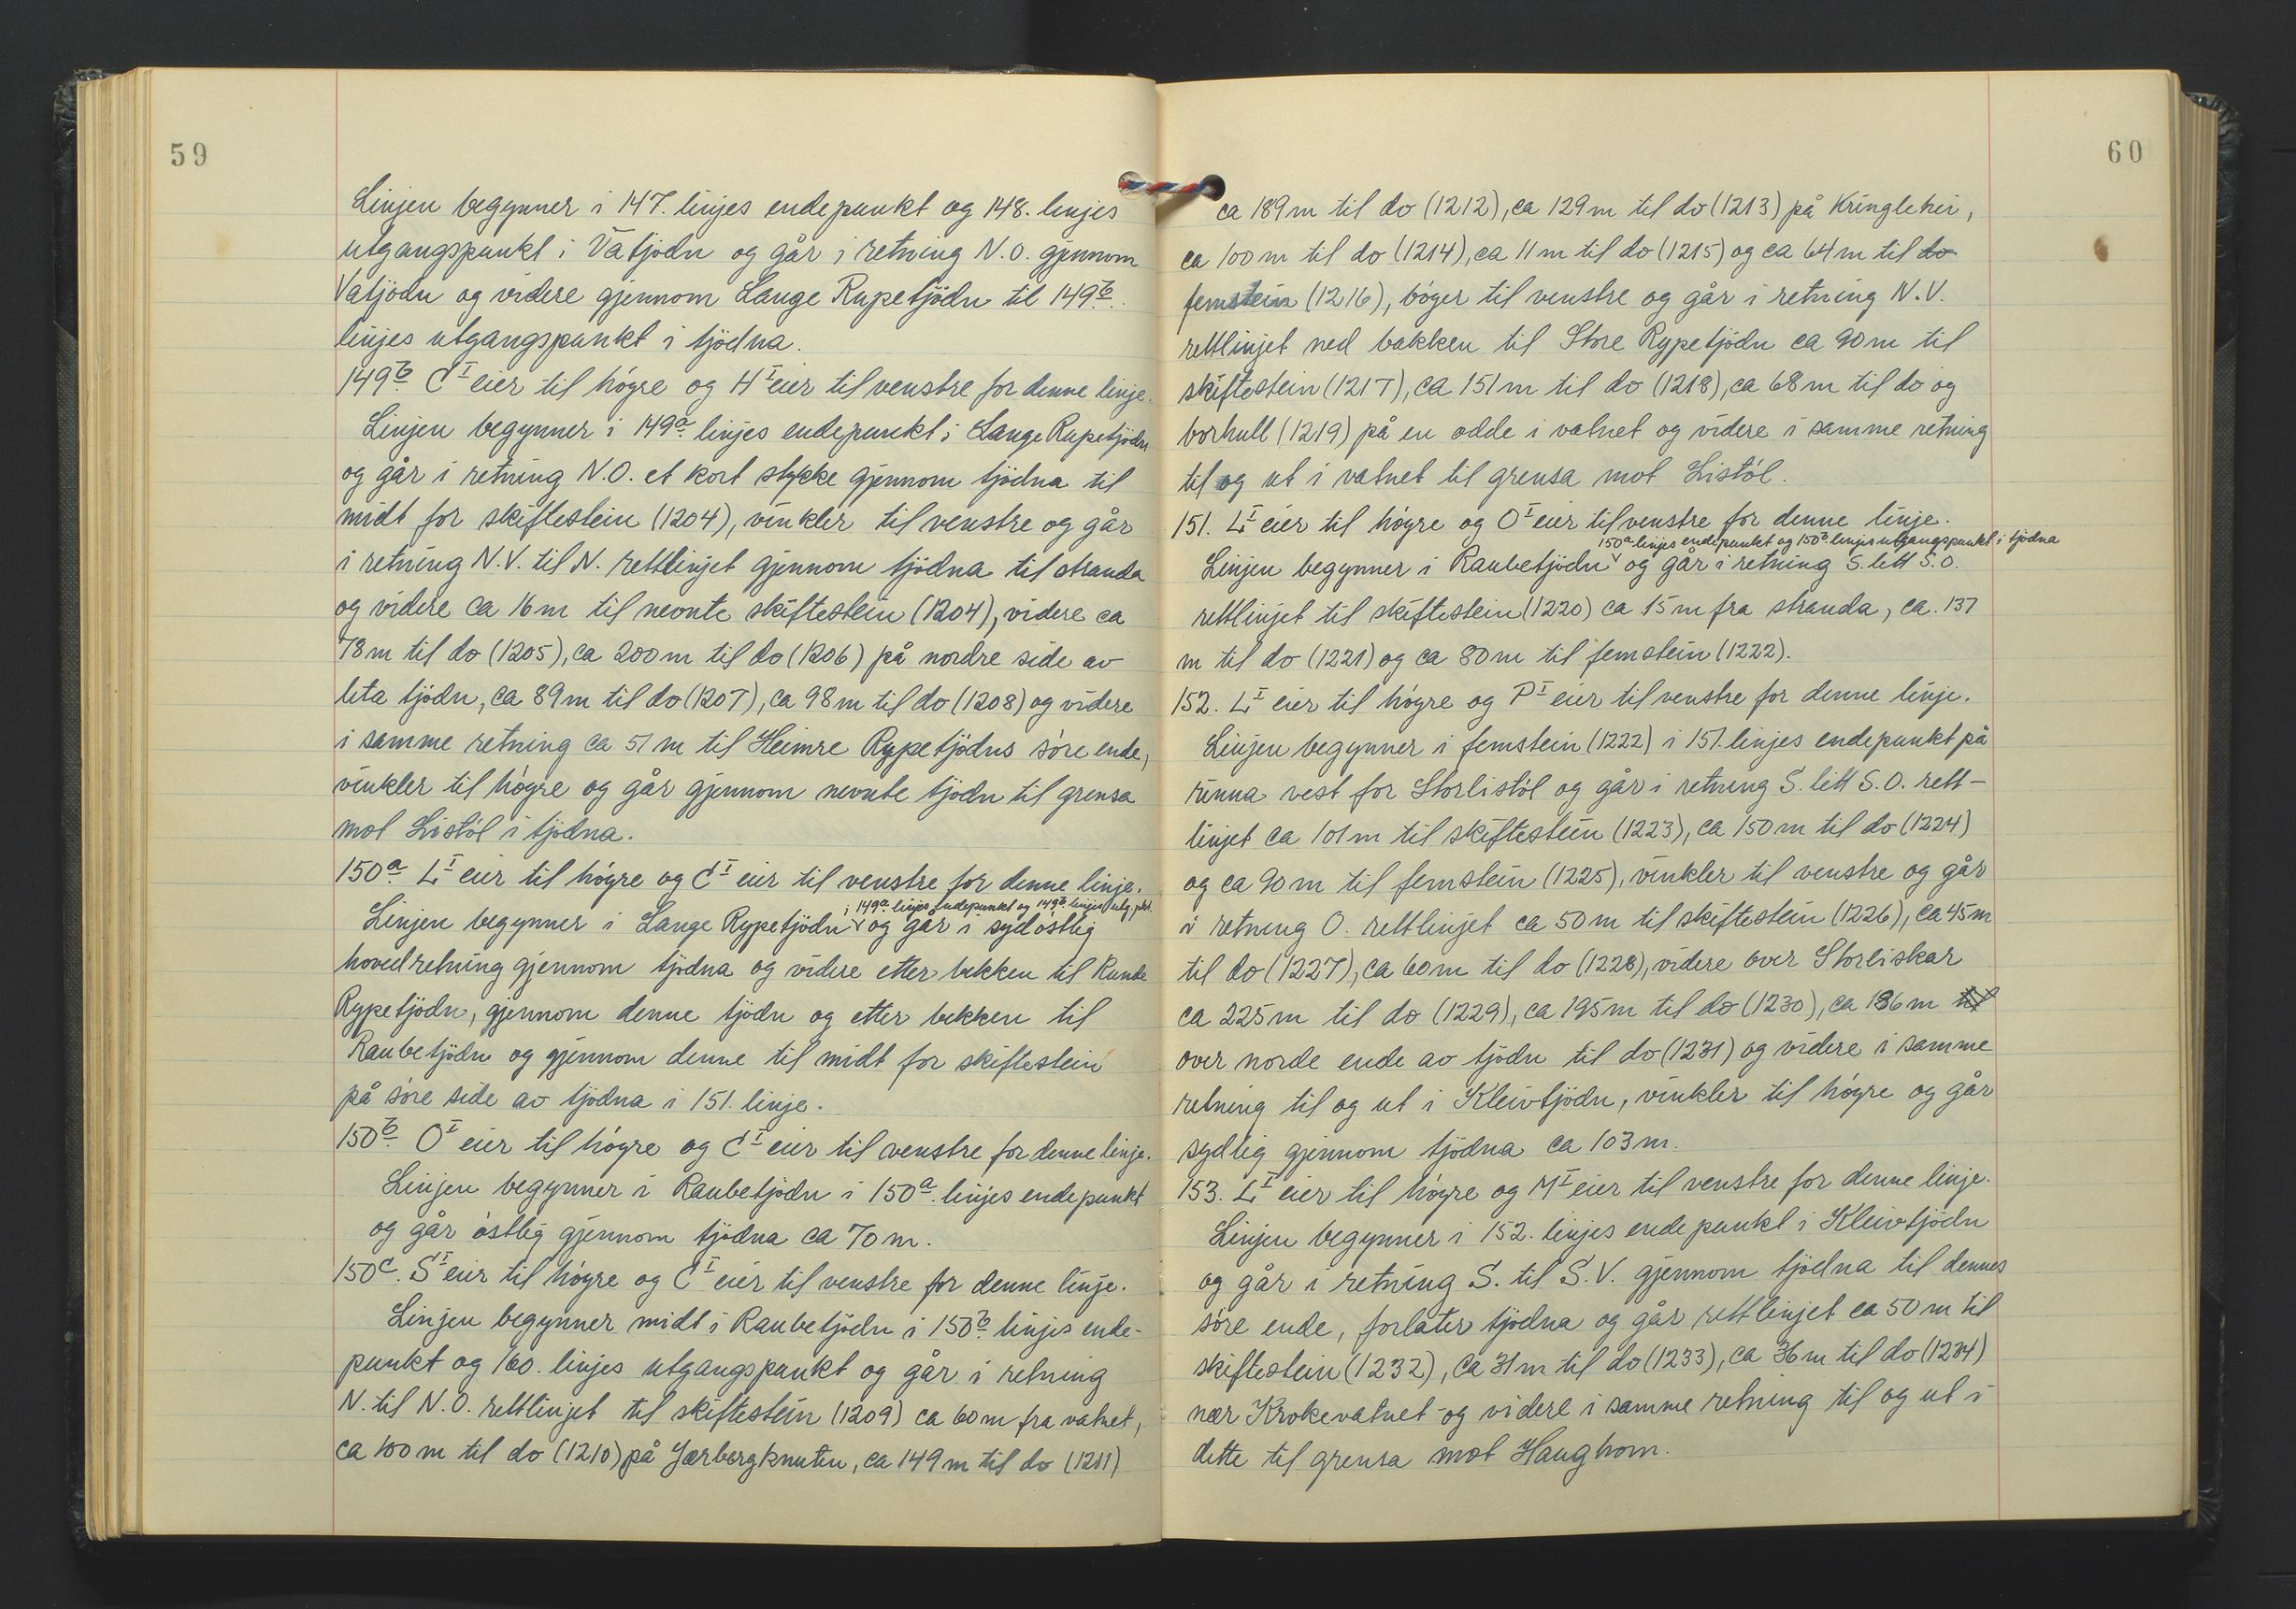 59
Linjen begynner i 147. linjes endepunkt og 148. linjes
utgangspunkt i Vatjödn og går i retning N.O. gjennom
Vatjödn og videre gjennom Lange Rupetjödn til 149b.
linjes utgangspunkt i tjödna.
149b. CI eier til högre og HI eier til venstre for denne linje.
Linjen begynner i 149a. linjes endepunkt i Lange Rupetjödn
og går i retning N.O. et kort stykke gjennom tjödna til
midt for skiftestein (1204), vinkler til venstre og går
i retning N.V. til N. rettlinjet gjennom tjödna til stranda
og videre ca 16 m til nevnte skiftestein (1204), videre ca
78 m til do (1205), ca 200 m til do (1206) på nordre side av
leta tjödn, ca 89 m til do (1207), ca 98 m til do (1208) og videre
i samme retning ca 51 m til Heimre Rypetjödns söre ende,
vinkler til högre og går gjennom nevnte tjödn til grensa
mot Listöl i tjödna.
150a. LI eier til högre og CI eier til venstre for denne linje.
i 149a. linjes endepunkt og 149b. linjes utg. pkt.
Linjen begynner i Lange Rypetjödn og går i sydöstlig
hovedretning gjennom tjödna og videre etter bekken til Runde
Rypetjödn, gjennom denne tjödn og etter bekken til
Raubetjödn og gjennom denne til midt for skiftestein
på söre side av tjödna i 151. linje.
150b. OI eier til högre og CI eier til venstre for denne linje.
Linjen begynner i Raubetjödn i 150a. linjes endepunkt
og går östlig gjennom tjödna ca 70 m.
150c. SI eier til högre og CI eier til venstre for denne linje.
Linjen begynner midt i Raubetjödn i 150b. linjes ende-
punkt og 160. linjes utgangspunkt og går i retning
N. til N.O. rettlinjet til skiftestein (1209) ca 60 m fra vatnet,
ca 100 m til do (1210) på Jærbergknuten, ca 149 m til do (1211)
60
ca 189 m til do (1212), ca 129 m til do (1213) på Kringlehei,
ca 100 m til do (1214), ca 11 m til do (1215) og ca 64 m til do
femstein (1216), böger til venstre og går i retning N.V.
rettlinjet ned bakken til Store Rypetjödn ca 90 m til
skiftestein (1217), ca 151 m til do (1218), ca 68 m til do og
borhull (1219) på en odde i vatnet og videre i samme retning
til og ut i vatnet til grensa mot Listöl.
151. LI eier til högre og OI eier til venstre for denne linje.
150a. linjes endepunkt og 150b. linjes utgangspunkt i tjödna
Linjen begynner i Raubetjödn og går i retning S. litt S.O.
rettlinjet til skiftestein (1220) ca 15 m fra stranda, ca. 137
m til do (1221) og ca 80 m til femstein (1222).
152. LI eier til högre og PI eier til venstre for denne linje.
Linjen begynner i femstein (1222) i 151. linjes endepunkt på
rinna vest for Storlistöl og går i retning S. litt S.O. rett-
linjet ca 101 m til skiftestein (1223), ca 150 m til do (1224)
og ca 90 m til femstein (1225), vinkler til venstre og går
i retning O. rettlinjet ca 50 m til skiftestein (1226), ca 45 m
til do (1227), ca 60 m til do (1228), videre over Storliskar
ca 225 m til do (1229), ca 195 m til do (1230), ca 186 m til
over norde ende av tjödn til do (1231) og videre i samme
retning til og ut i Kleivtjödn, vinkler til högre og går
sydlig gjennom tjödna ca 103 m.
153. LI eier til högre og MI eier til venstre for denne linje.
Linjen begynner i 152. linjes endepunkt i Kleivtjödn
og går i retning S. til S.V. gjennom tjödna til dennes
söre ende, forlater tjödna og går rettlinjet ca 50 m til
skiftestein (1232), ca 31 m til do (1233), ca 36 m til do (1234)
nær Krokevatnet og videre i samme retning til og ut i
dette til grensa mot Haughom.